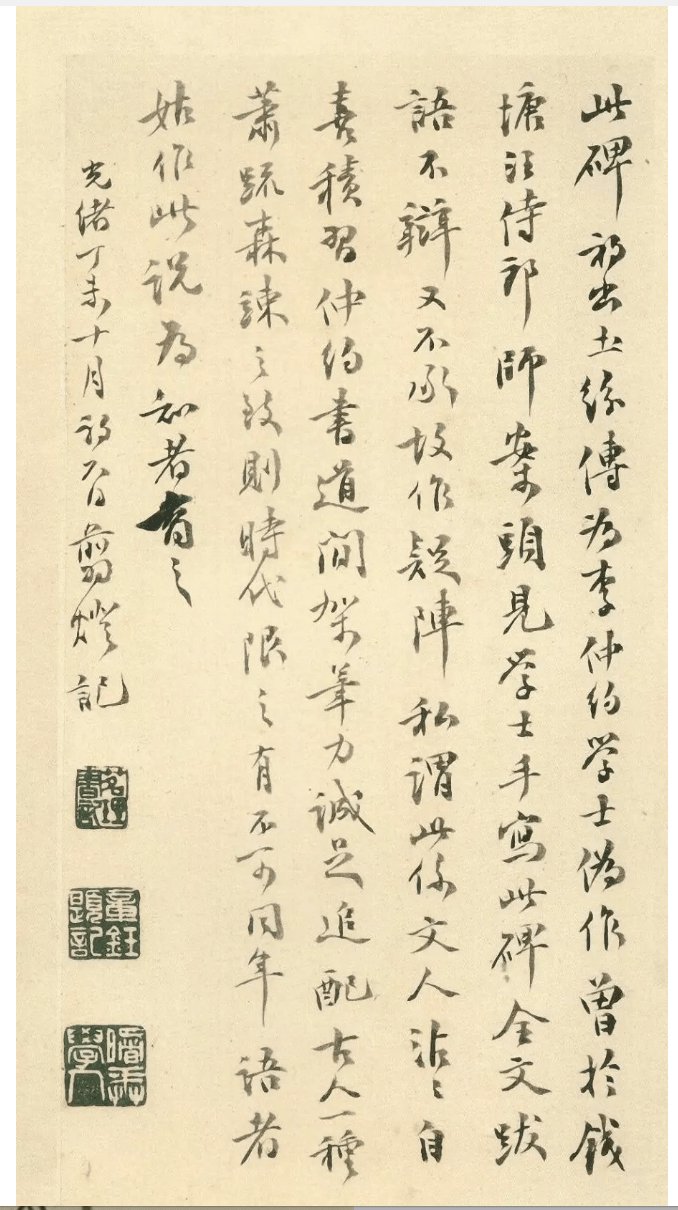 此碑初出土綌傳為李仲約學士偽作曾於錢
塘汪侍郎師案頭見學士手寫此碑全文跋
語不辯又不承故作疑陣私謂此係文人沾〻自
喜積習仲約書道間架筆力誠足追配古人一種
蕭疏森疎之致則時代限之有不可同年語者
姑作此說為知者質之
光緒丁未十月初六日翦燈記
茗理書記
章鈺題記
學人